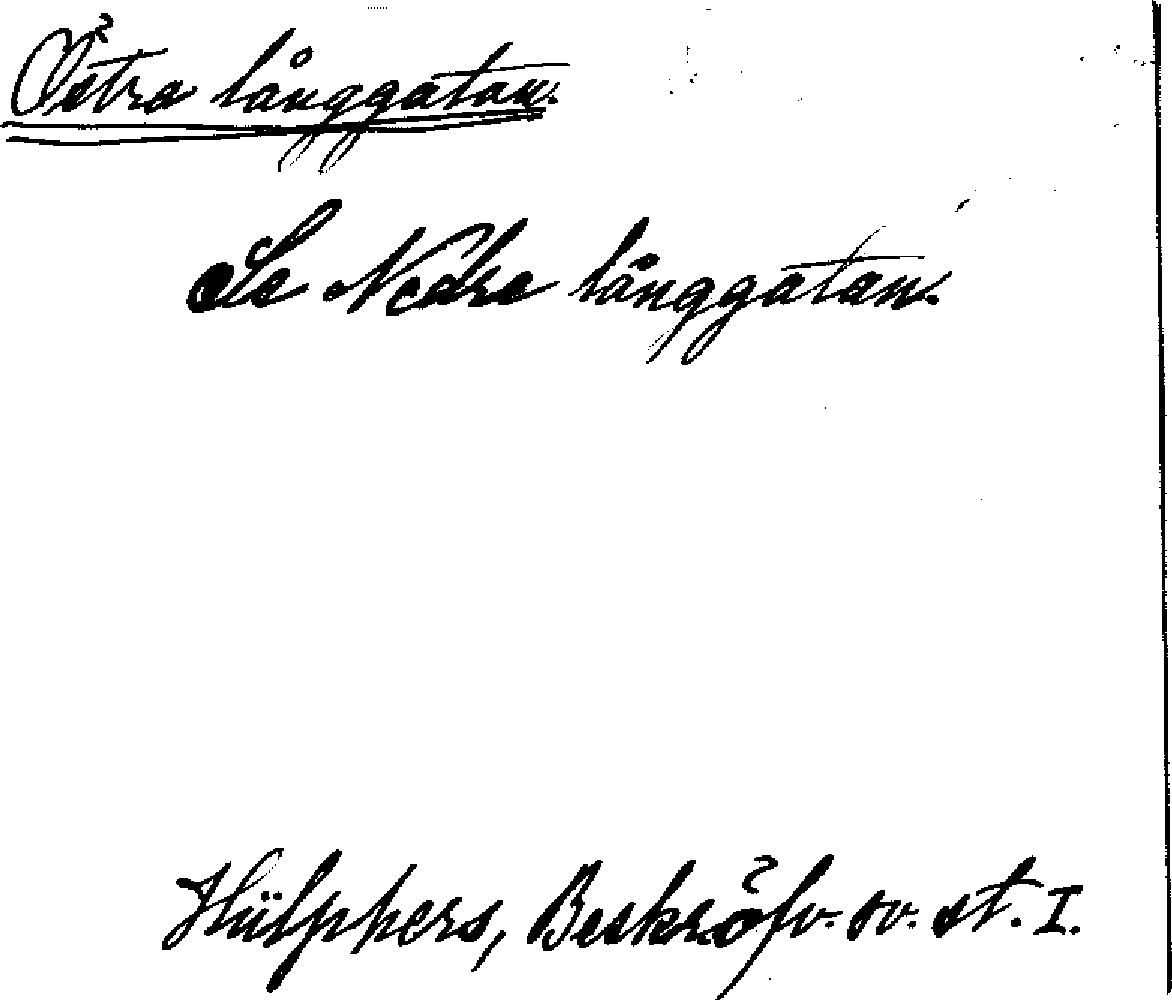 Östra långgatan.
Se Nedre långgatan.
Hülphers, Beskröfv. sv. st. I.